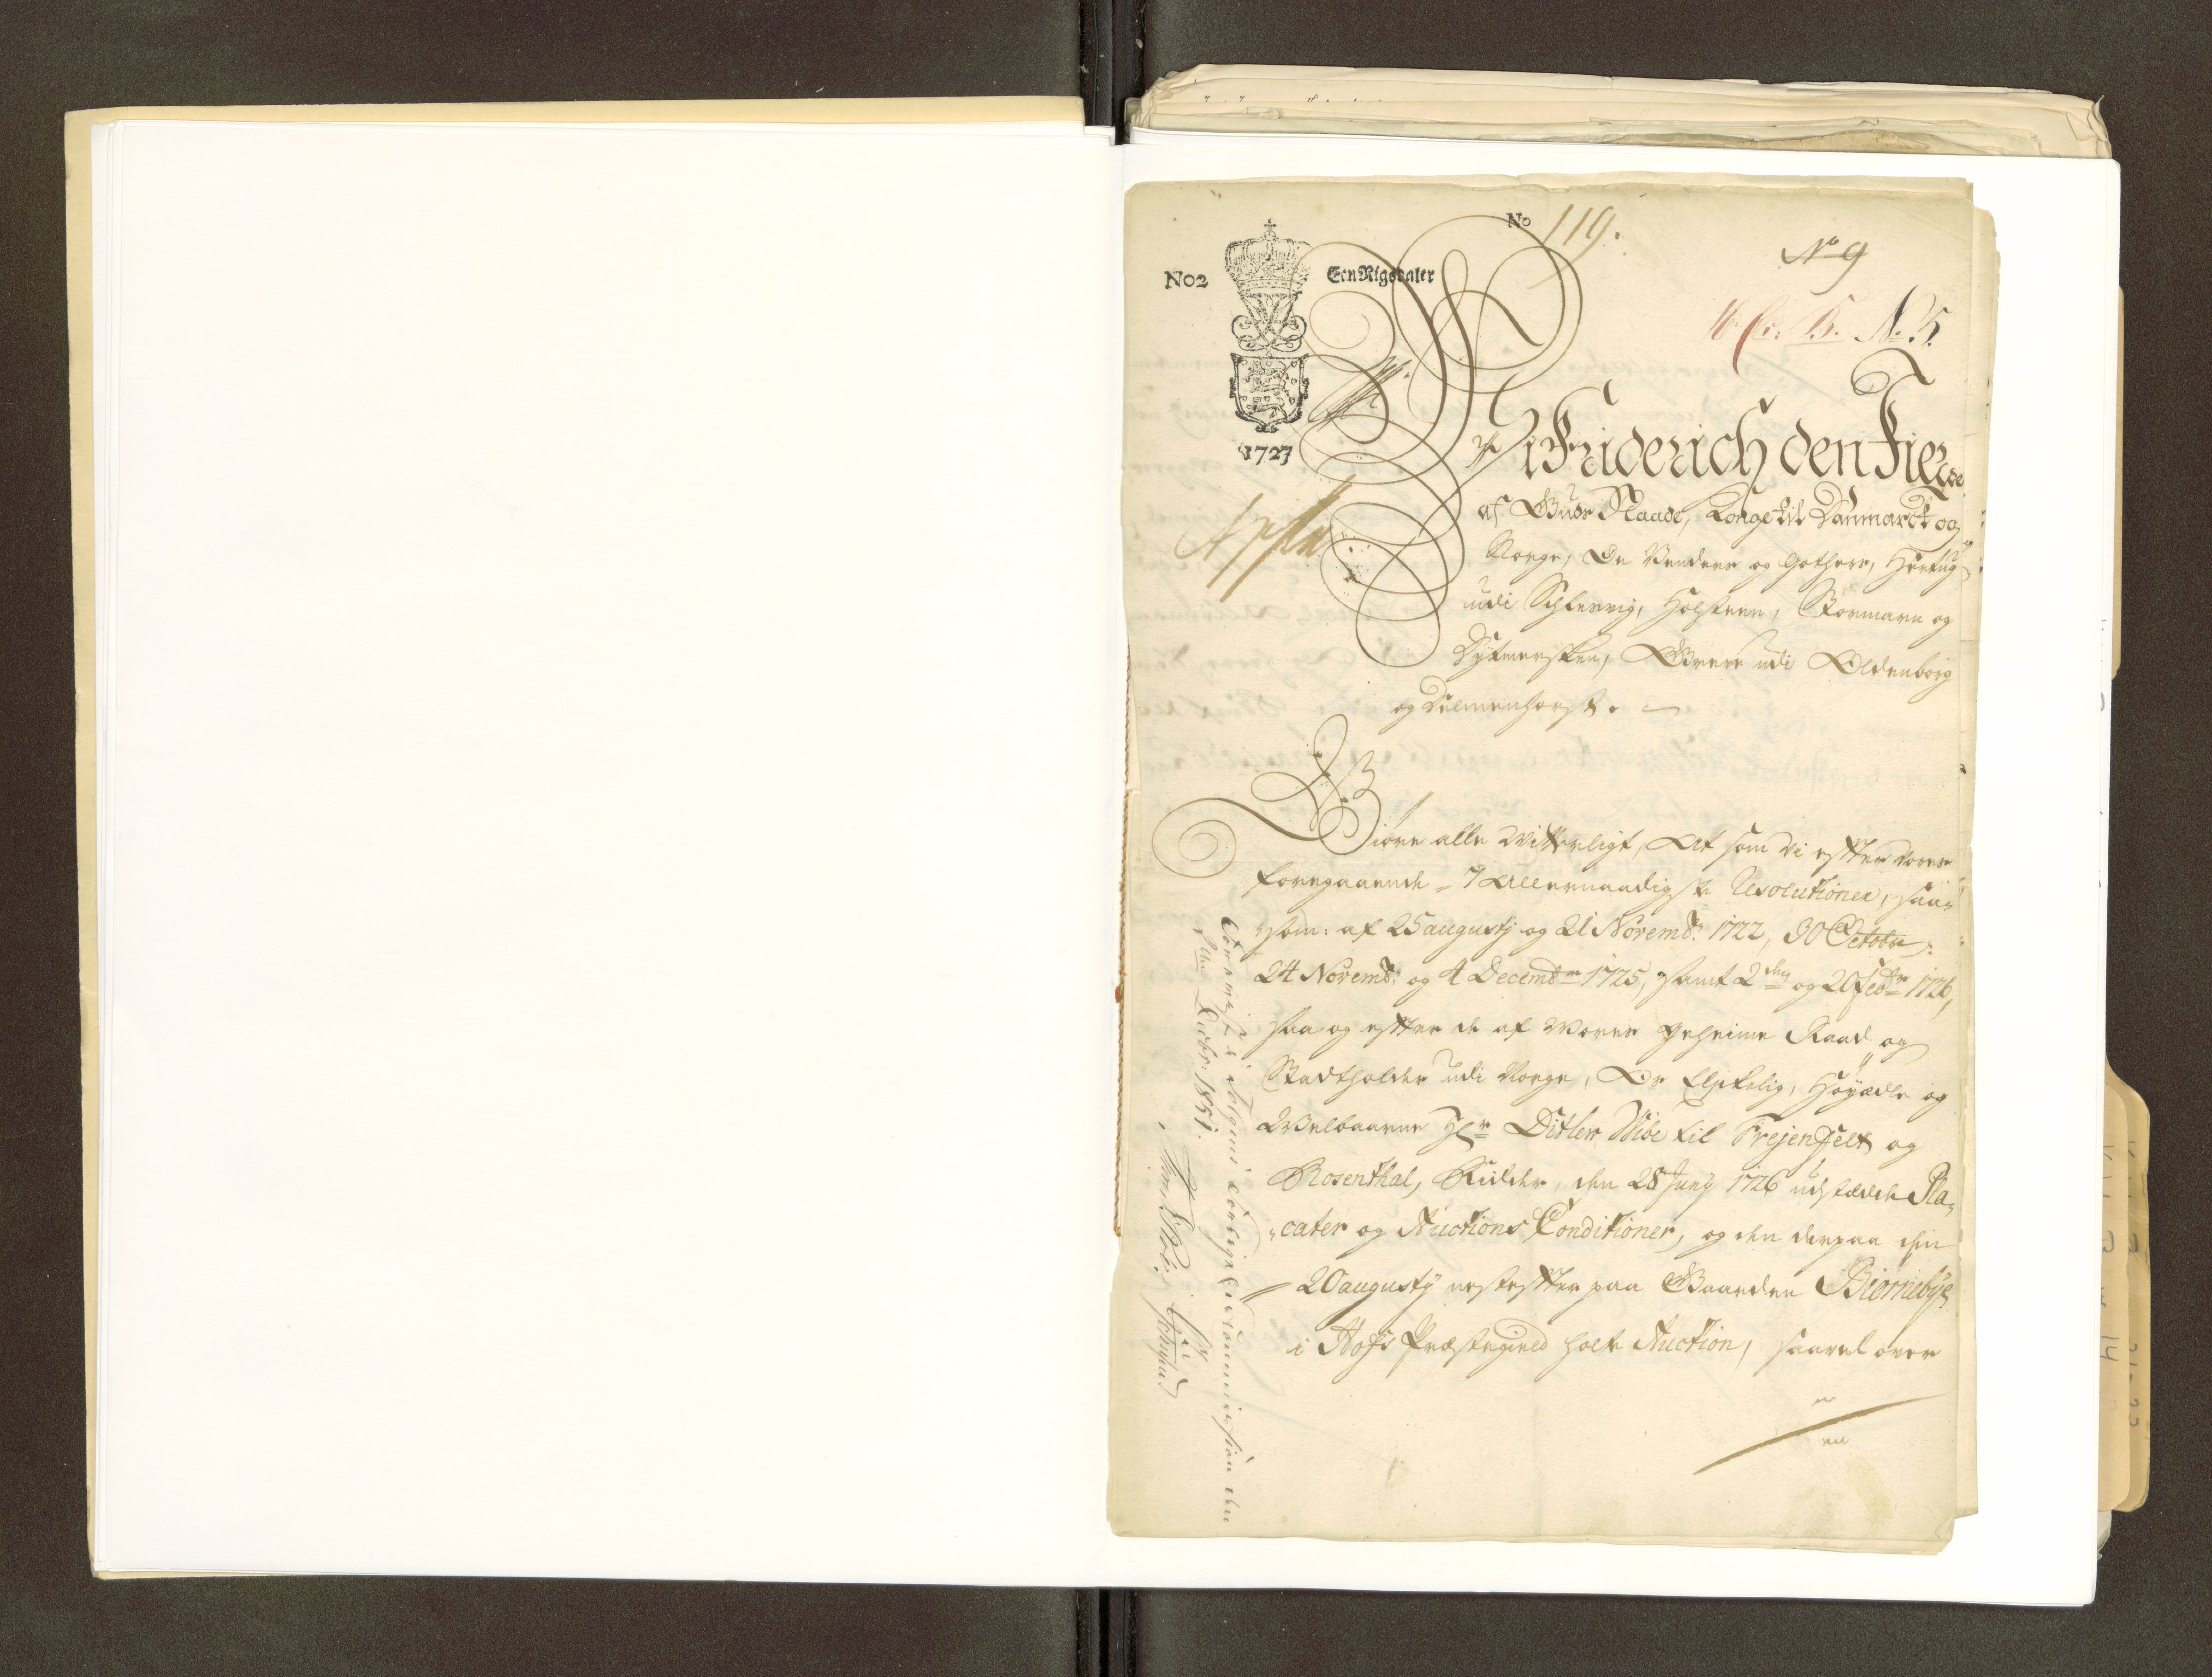 No 119.
No 9
No2
Een Rigsdaler
No. 5.
1723
Vi Friderich den Fierde
af Guds Naade, Konge til Danmarck og
Norge, De Venders og Gothers, Hertug
udi Schlesvig, Holsteen, Stormarn og
Dytmersken, Greve udi Oldenborg
og Delmenhorst.
Giøre alle Vitterligt, At som Vi effter Vores
foregaaende 7 Allernaadigste Resolutioner, saa„
som: af 25 augustj og 21 Novembr: 1722, 30 Octobr:
24 Novembr: og 4 Decembr 1725, samt 2den og 20 Febr 1726,
saa og effter de af Vores geheime Raad og
Stadtholder udi Norge, Os Elskelig, Høyædle og
Velbaarne Hr Ditlev Wibe til Frejenfelt og
Rosenthal, Ridder, den 28 Junÿ 1726 udstædde Pla„
„cater og Auctions Conditioner, og den derpaa den
20 augustÿ nesteffter paa Gaarden Biørnebÿe
i Hofs Præstegield holte Auction, saavel over
Fremvist i Følgens Forligelsescommission den
Decbr: 1851.